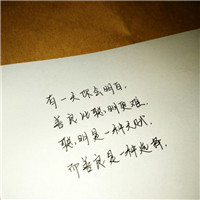 有一天你会明白,
善良比聪明更难.
聪明是一种天赋,
而善良是一种选择.